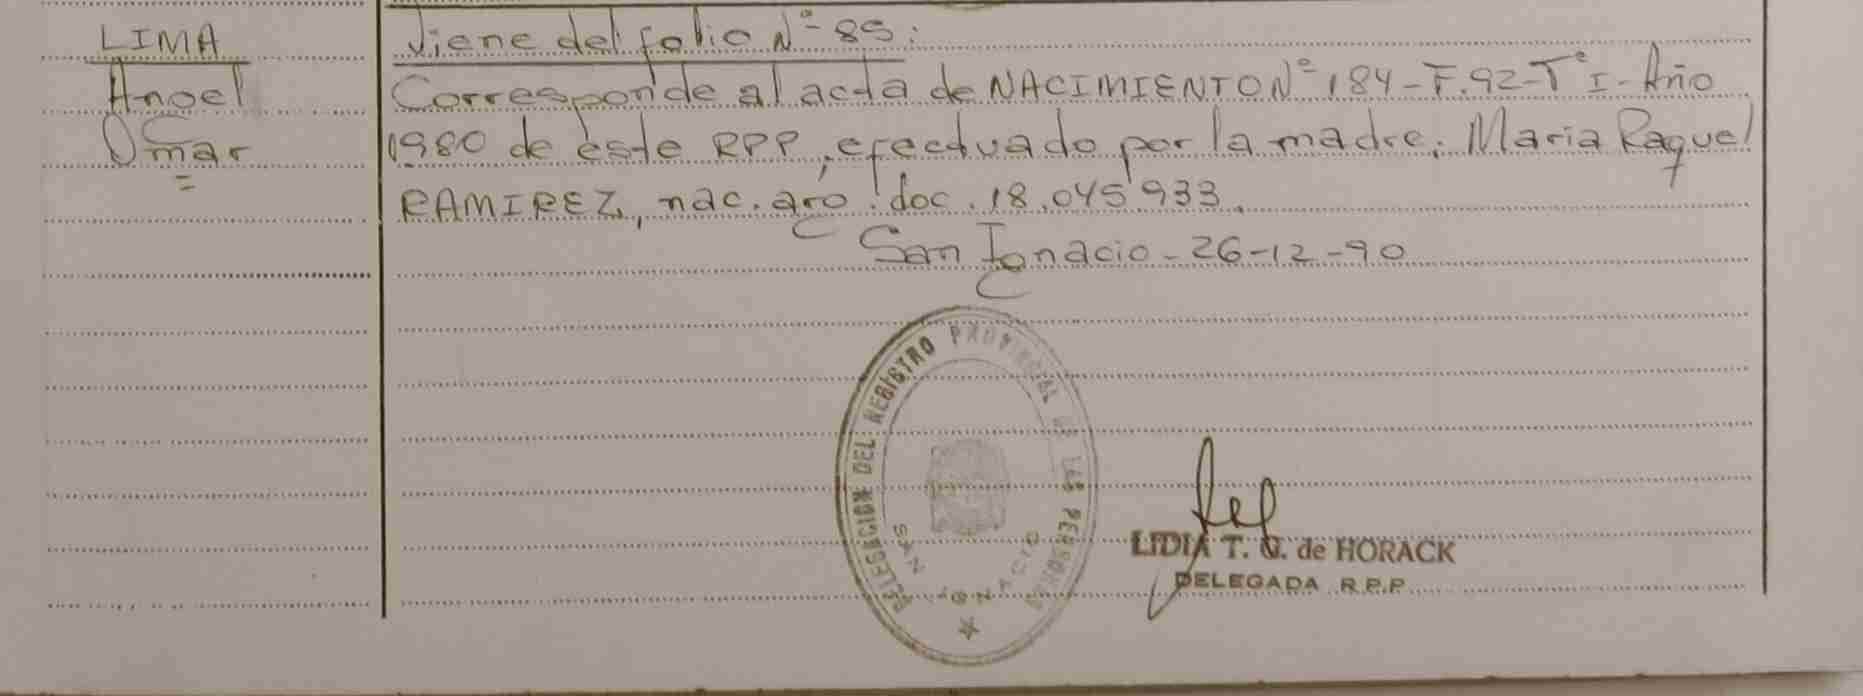 LIMA
Angel
Omar
Viene del folio Nº 85:
Corresponde al acta de NACIMIENTO Nº 184-F.92-Tº I-Año
1980 de este RPP, efectuado por la madre: Maria Raquel
RAMIREZ, nac. arg. doc. 18.045933.
San Ignacio-26-12-90
DELEGACION DEL REGISTRO PROVINCIAL DE LAS PERSONAS
SAN IGNACIO
LIDIA T. G. de HORACK
DELEGADA R.P.P.